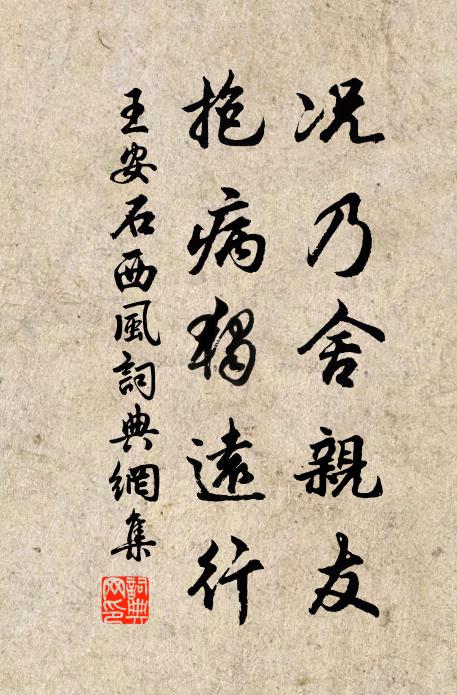 况乃舍親友
抱病獨遠行
王安石西風詞典網集